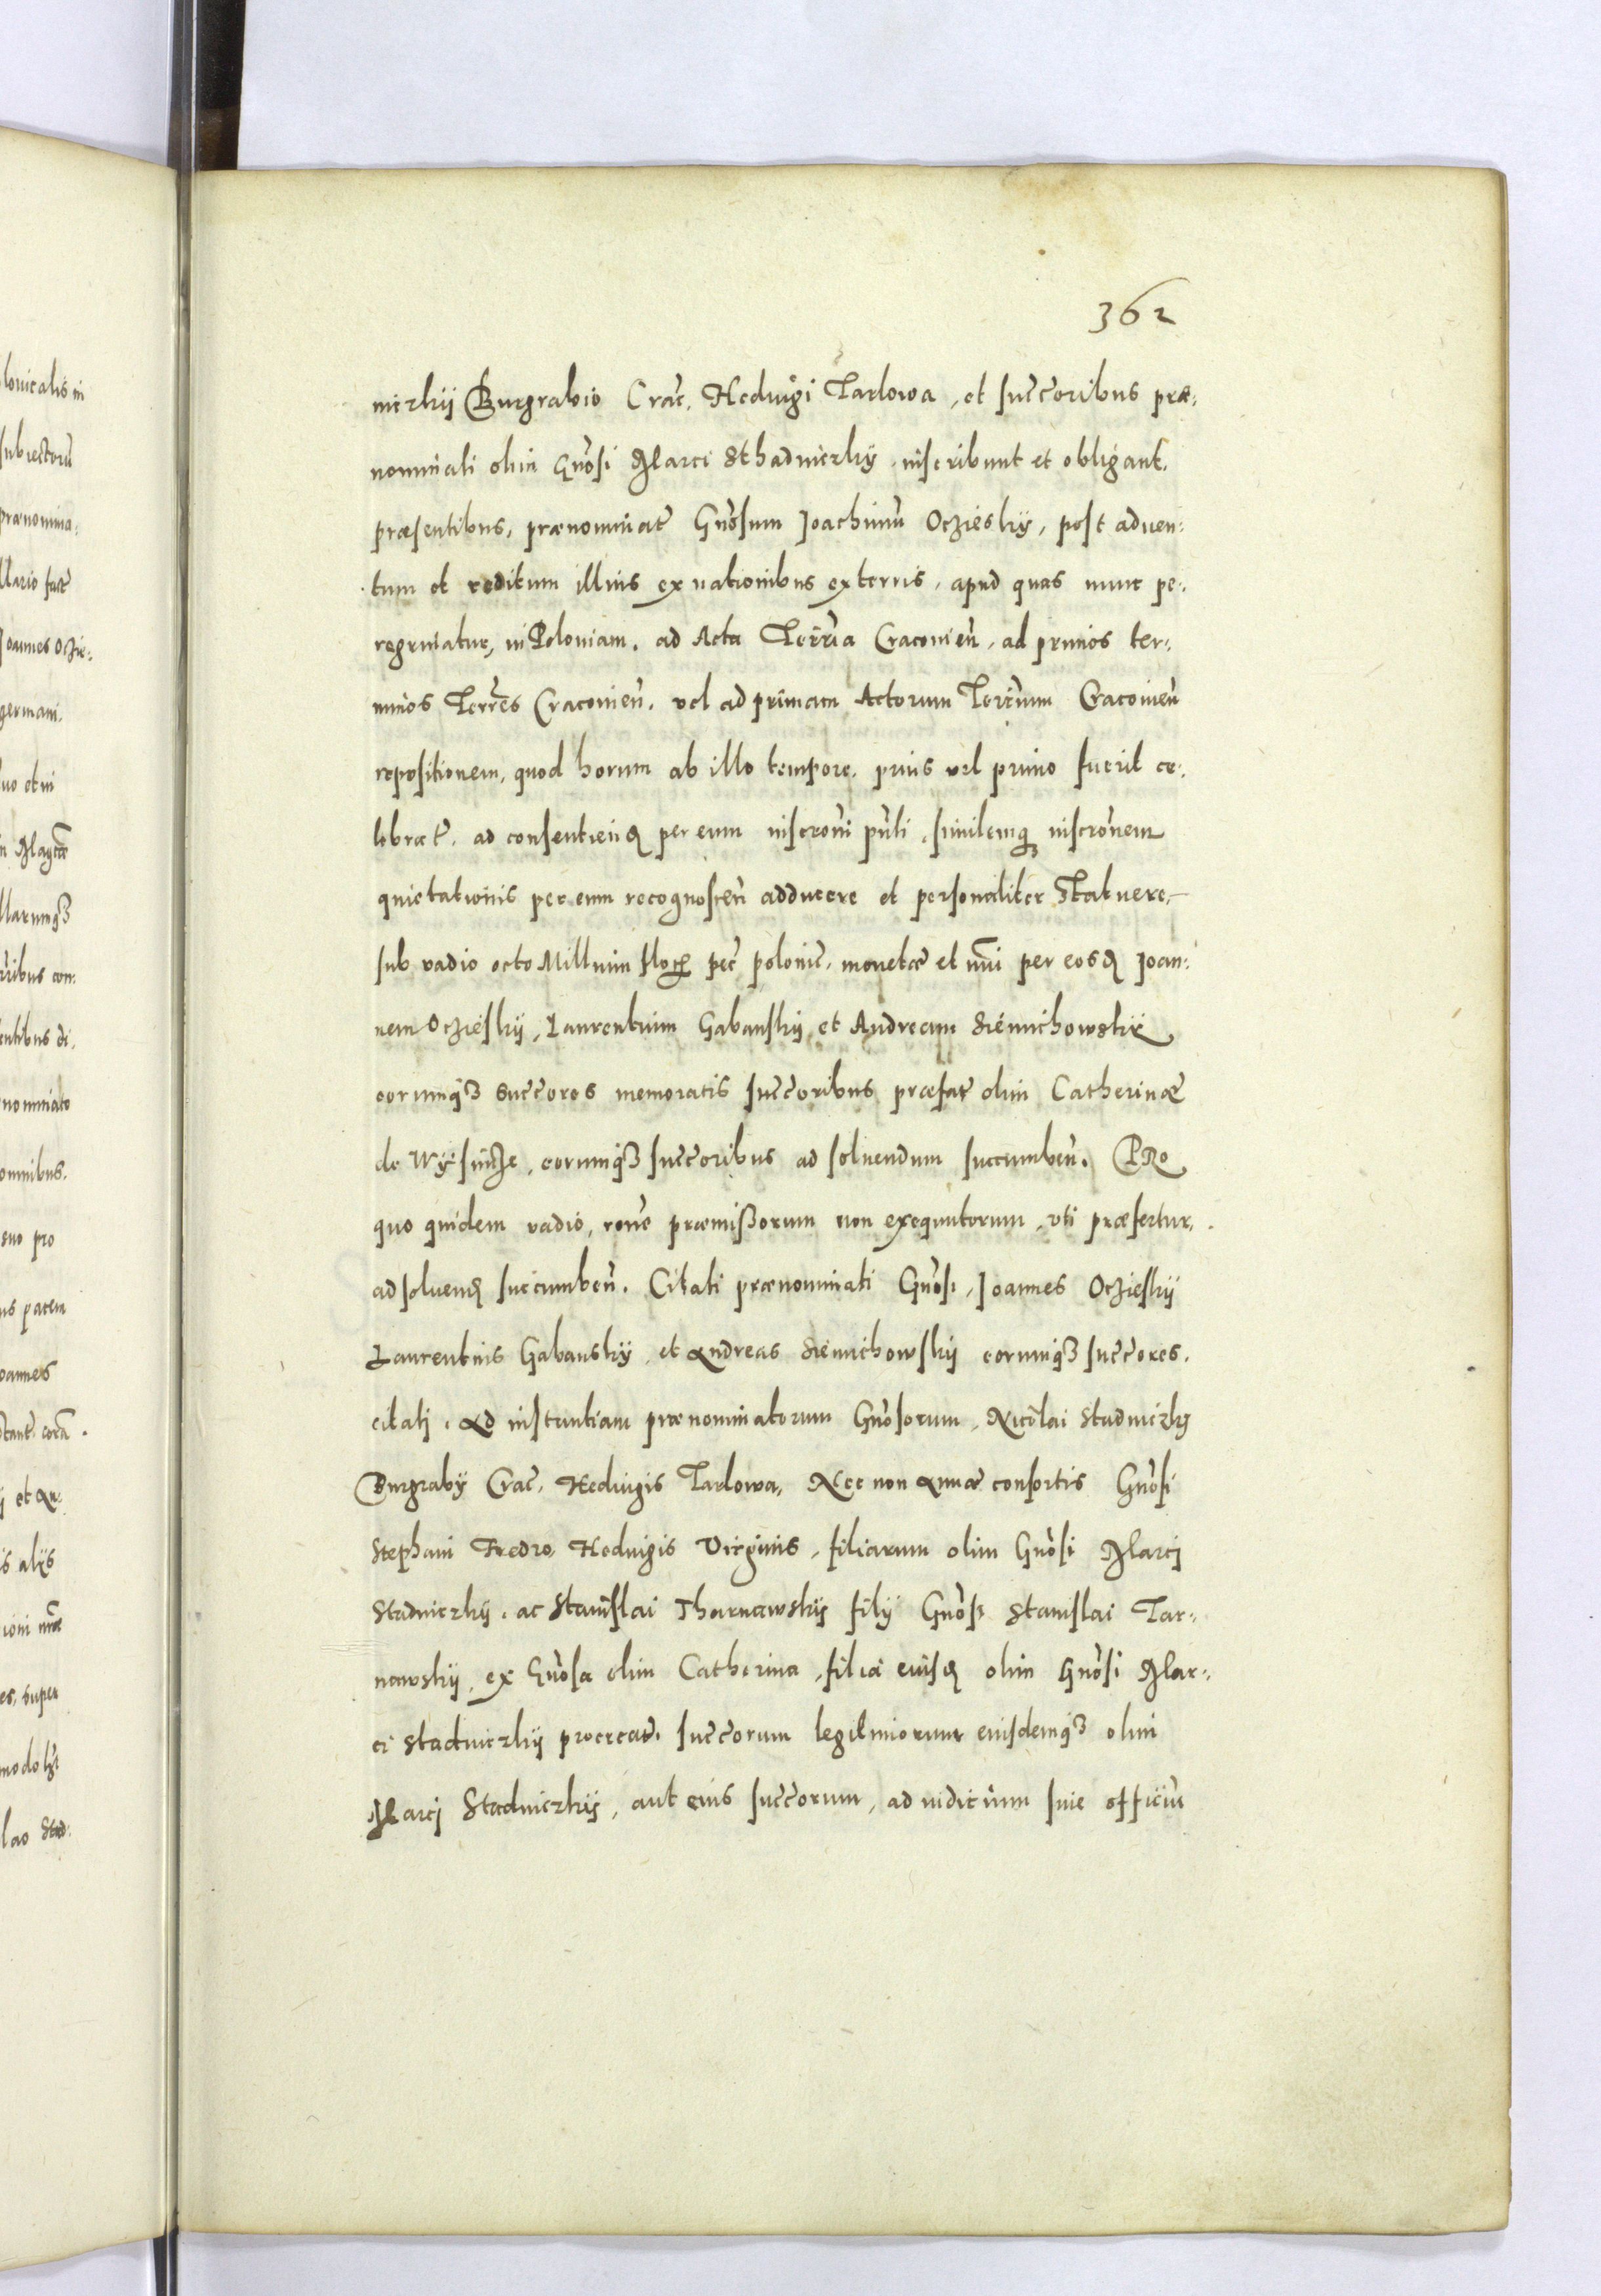 362
niczkÿ Burgrabio Crac̃. Hedvigi Tarlowa, et succ̃oribus præ:
nominati olim Gnõsi Marci Sthadniczkÿ, inscribunt et obligant.
præsentibus, prænominat̃ Gnõsum Joachimũ Oczieskÿ, post aduen:
tum et reditum illius ex nationibus exteris, apud quas nunc pe:
regrinatur, in Poloniam. ad Acta Terrĩa Cracovieñ, ad primos ter:
minos Terrẽs Cracovieñ. vel ad primam Actorum Terrñum Cracovieñ
repositionem, quod horum ab illo tempore, prius vel primo fuerit ce:
lebrat̃. ad consentieñd per eum inscrõni pñti, similemqȝ inscrõnem
quietationis per eum recognosceñ adducere et personaliter Statuere,
sub vadio octo Millium flor̃ pec̃ polonic̃. monetæ et nũi per eosd Joan:
nem Oczieskÿ, Laurentium Gabanskÿ, et Andream Siemichowskÿ
eorumqȝ succ̃ores memoratis succ̃oribus præfat̃ olim Catherinæ
de Wÿsnicze, eorumqȝ succ̃oribus ad soluendum succumbeñ. PRo
quo quidem vadio, rone præmißorum non exequutorum, vti præfertur,
ad soluend succumbeñ. Citati prænominati Gnõsi, Joannes Oczieskÿ
Laurentius Gabanskÿ, et Andreas Siemichowskÿ eorumqȝ succ̃ores.
citatj. Ad instantiam prænominatorum Gnõsorum, Nicolai Stadniczkÿ
Burgrabÿ Crac̃, Hedvigis Tarlowa, Nec non Annæ consortis Gnõsi
Stephani Fredro, Hedvigis Virginis, filiarum olim Gnõsi Marcj
Stadniczkÿ. ac Stanislai Tharnawskÿ filÿ Gnõsi Stanislai Tar:
nawskÿ, ex Gnõsa olim Catherina, filia eiusd olim Gnõsi Mar:
ci Stadniczkÿ procreat̃. succ̃orum legitimorum eiusdemqȝ olim
Marcj Stadniczkÿ, aut eius succ̃orum, ad iudicium siue officiũ